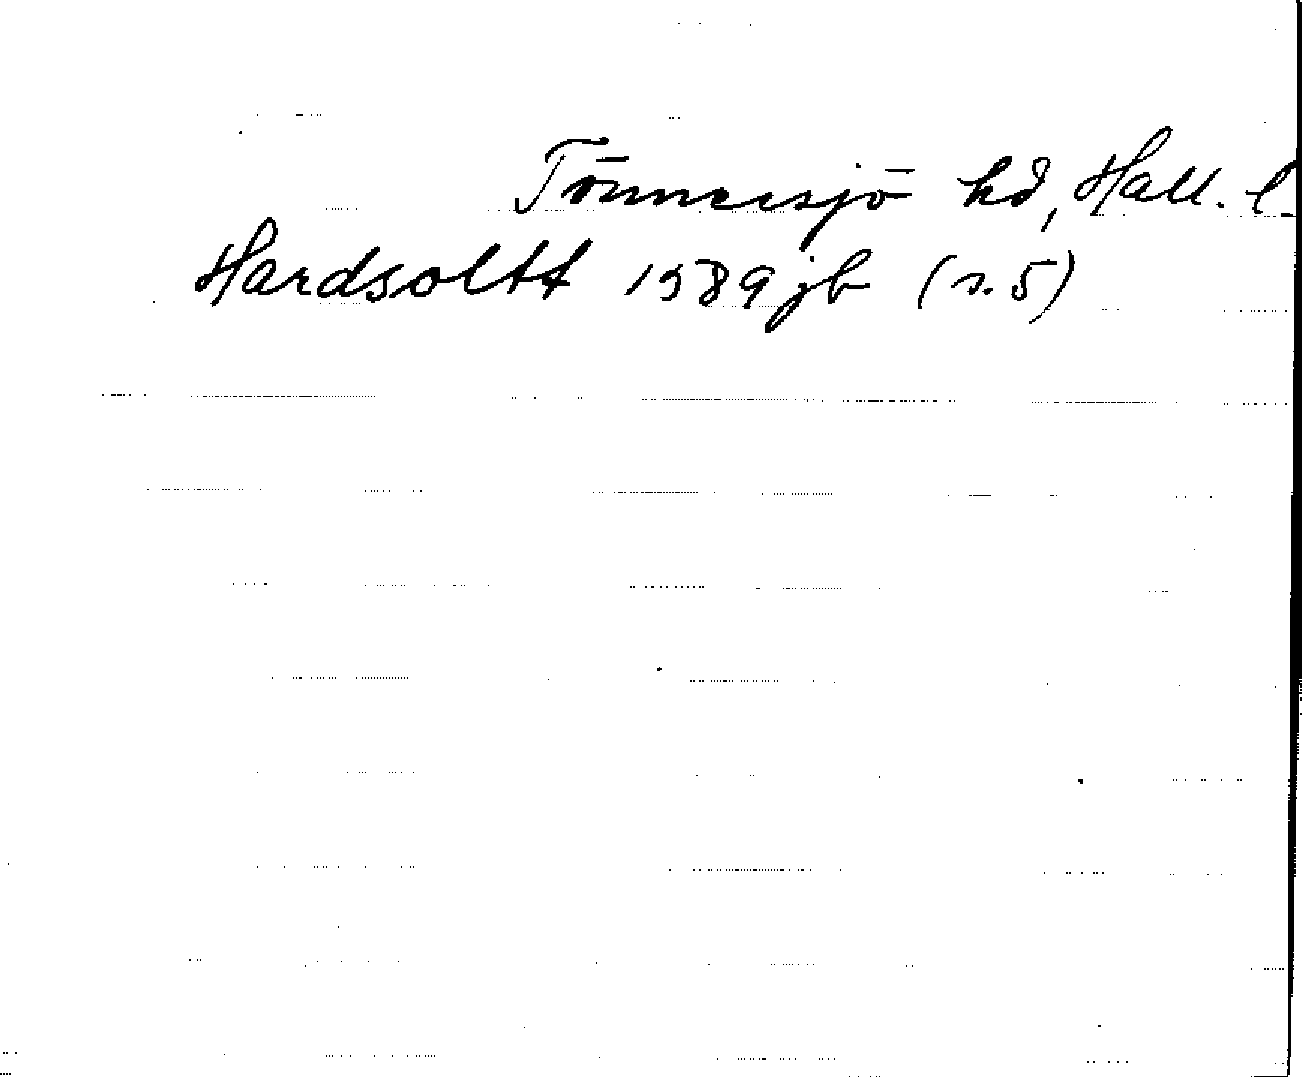 Tönnersjö hd, Hall. l.
Hardsoltt 1589 jb (s. 5)